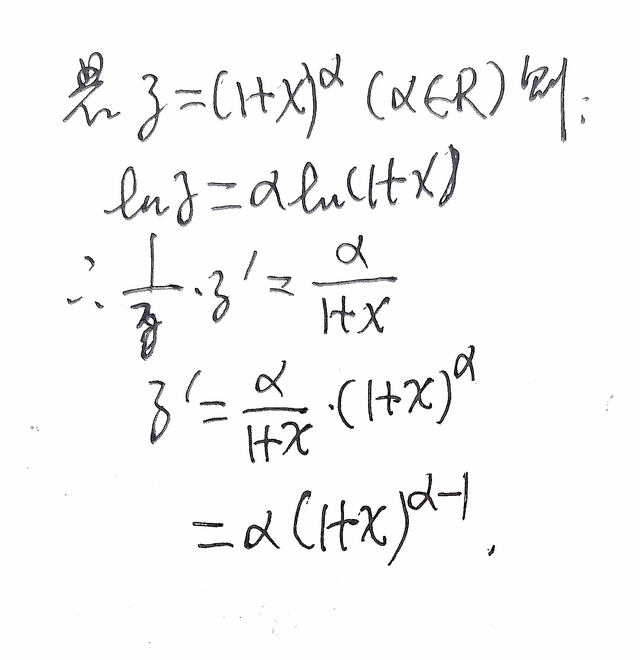 z=(1+x)^α (α∈R) 则:
ln z=α ln(1+x)
∴ 1/z · z′ = α/(1+x)
z′ = α/(1+x) · (1+x)^α
= α(1+x)^(α-1).